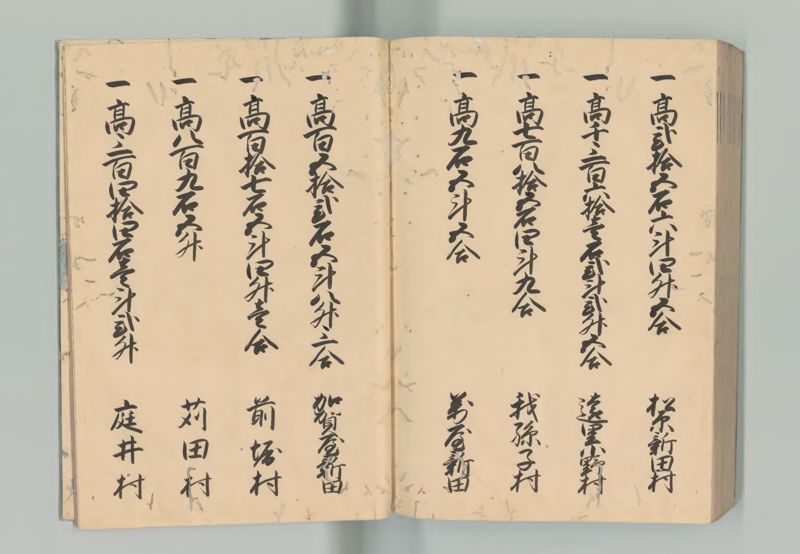 一 高弐拾五石六斗四升五合 松原新田村
一 高千三百六拾壱石弐斗弐升五合 遠里小野村
一 高七百八拾五石四斗九合 我孫子村
一 高九石五斗五合 万屋新田
一 高百五拾弐石五斗八升三合 加賀屋新田
一 高百拾七石五斗四升壱合 前堀村
一 高八百九石五升 苅田村
一 高三百四拾四石壱斗弐升 庭井村